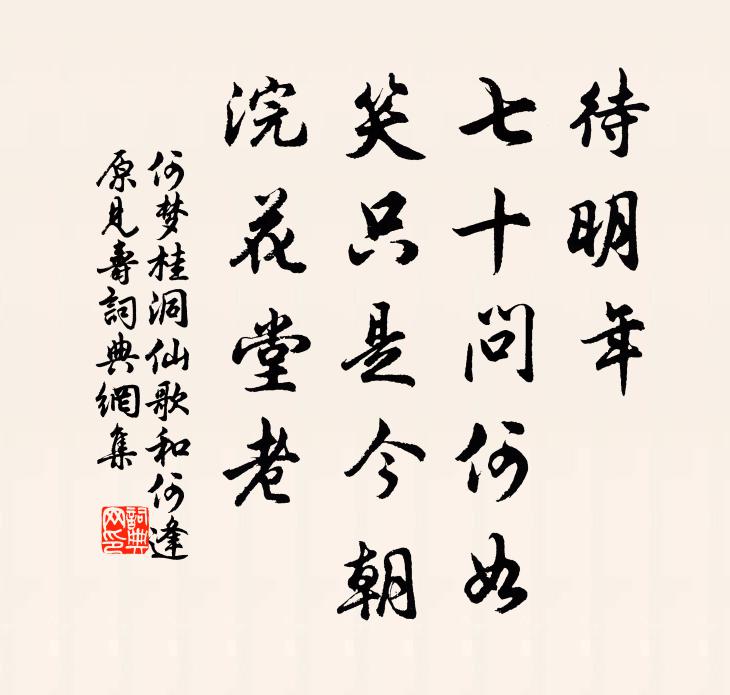 待明年
七十问何如
笑只是今朝
浣花堂老
何梦桂洞仙歌和何逢
原見壽詞典網集
詞典
网印